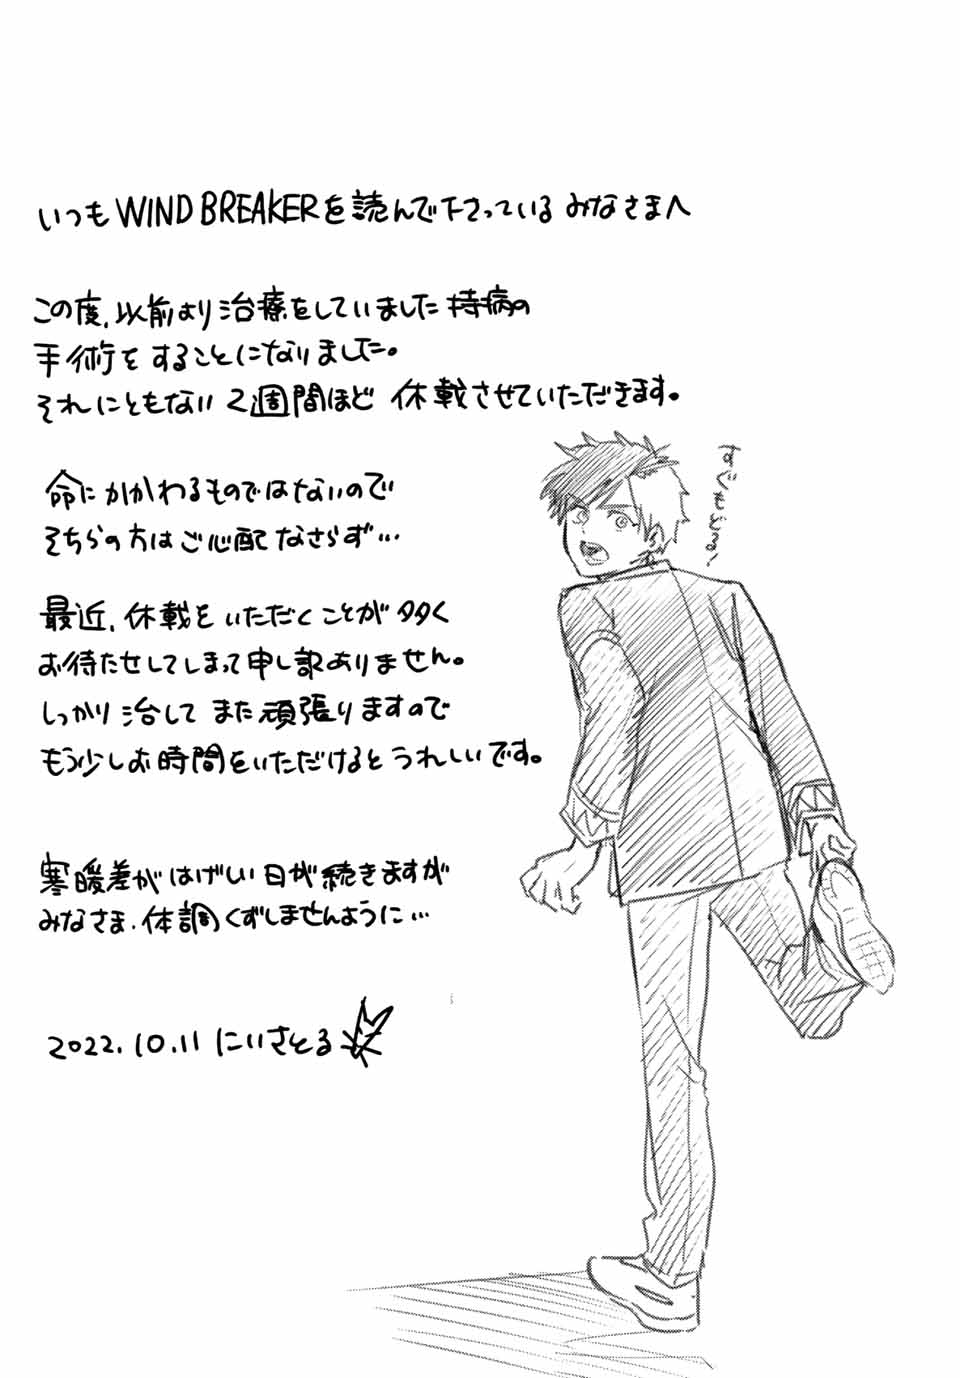 いつもWIND BREAKERを読んで下さっているみなさまへ
この度、以前より治療をしていました持病の
手術をすることになりました。
それにともない2週間ほど 休載させていただきます。
命にかかわるものではないので
そちらの方はご心配なさらず…
最近、休載をいただくことが多く
お待たせしてしまって申し訳ありません。
しっかり治してまた頑張りますので
もう少しお時間をいただけるとうれしいです。
寒暖差がはげしい日が続きますが
みなさま、体調くずしませんように…
2022.10.11 にいさとる